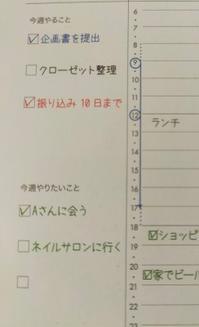 今週やること
企画書を提出
クローゼット整理
振り込み 10日まで
今週やりたいこと
Aさんに会う
ネイルサロンに行く
6
7
8
9
10
11
12
ランチ
13
14
15
16
17
18
ショッピ
19
20
21
家でビール